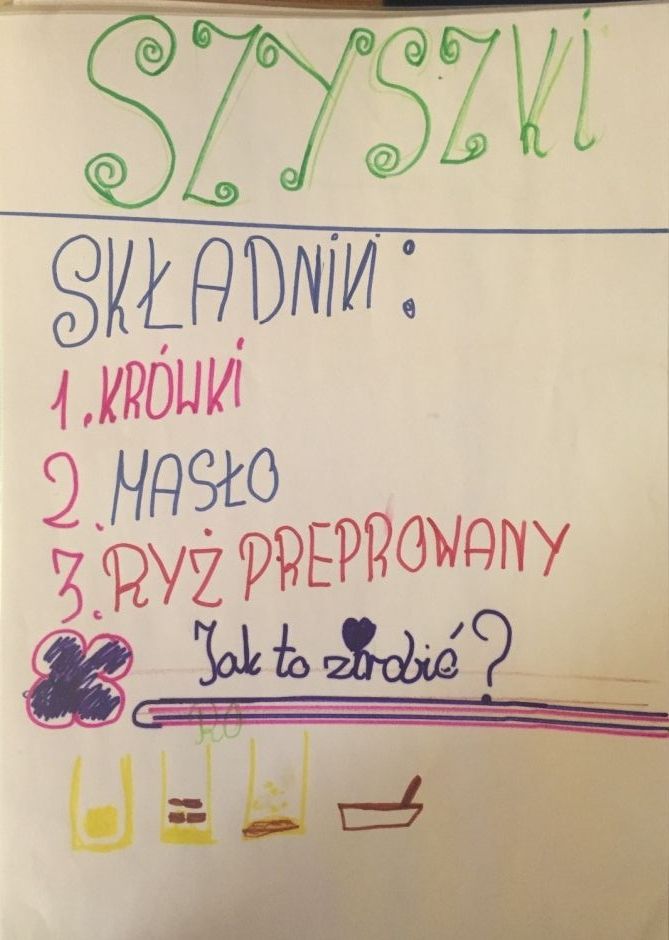 SZYSZKI
SKŁADNIKI:
1. KRÓWKI
2. MASŁO
3. RYŻ PREPROWANY
Jak to zrobić?
RO